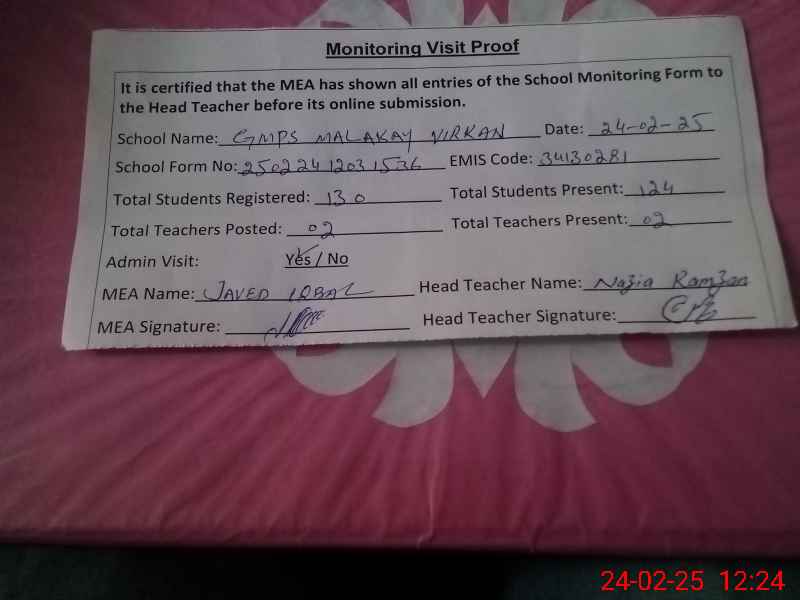 Monitoring Visit Proof
It is certified that the MEA has shown all entries of the School Monitoring Form to
the Head Teacher before its online submission.
School Name: GMPS MALAKAY VIRKAN Date: 24-02-25
School Form No: 25022412031536 EMIS Code: 34130281
Total Students Registered: 130 Total Students Present: 124
Total Teachers Posted: 02 Total Teachers Present: 02
Admin Visit: Yes / No
MEA Name: JAVED IQBAL Head Teacher Name: Nazia Ramzan
MEA Signature: Head Teacher Signature:
24-02-25 12:24